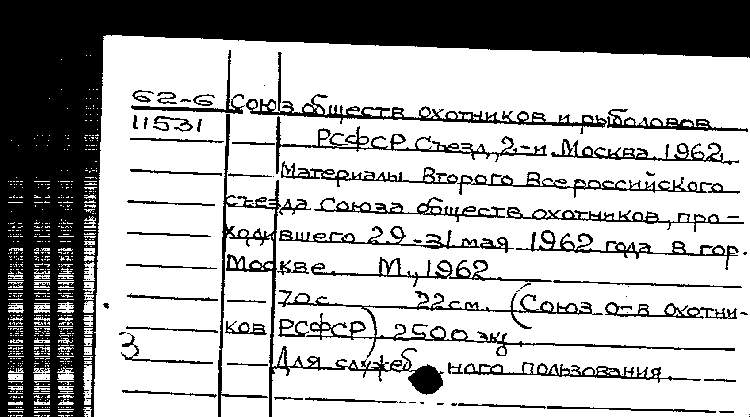 62-6 Союз обществ охотников и рыболовов
11531 РСФСР Съезд, 2-й. Москва. 1962.
Материалы Второго Всероссийского
съезда Союза обществ охотников, про-
ходившего 29-31 мая 1962 года в гор.
Москве. М., 1962.
70 с. 22 см. (Союз о-в охотни-
ков РСФСР) 2500 экз.
3 Для служебного пользования.